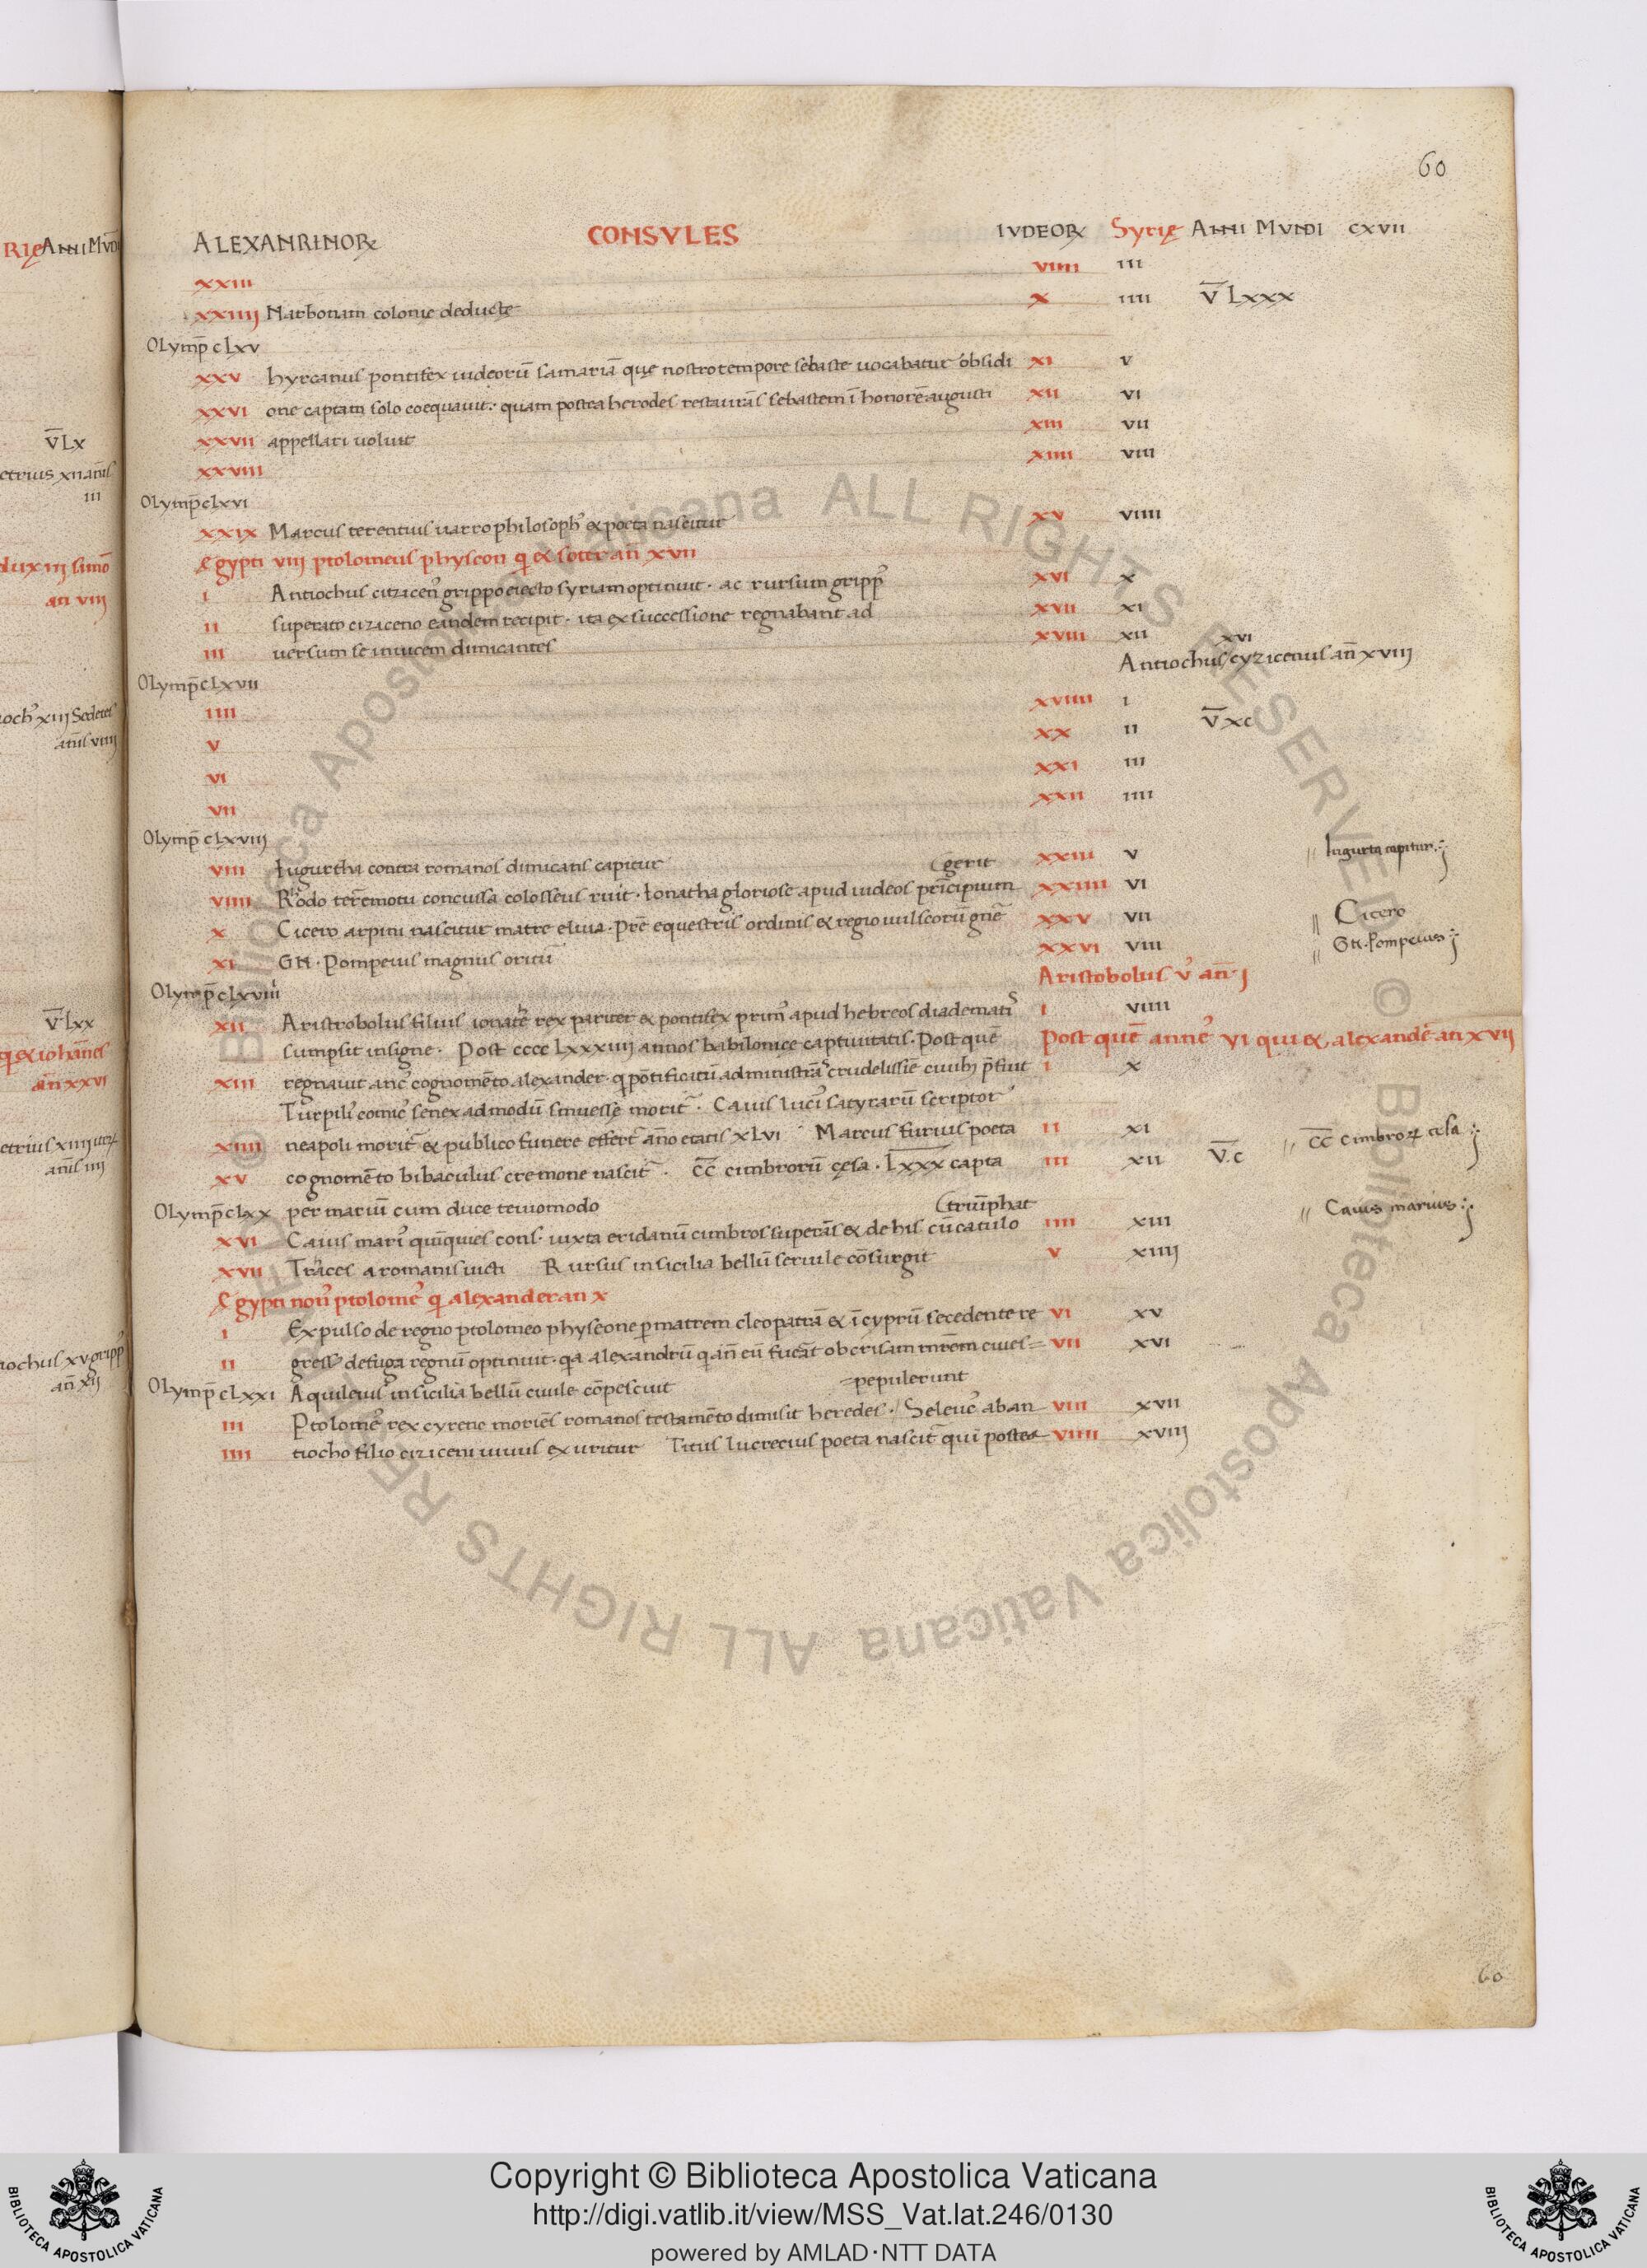 60
RIę ANNI MVNDI
ALEXANRINORꝝ CONSVLES IVDEORꝝ Syrię ANNI MVNDI CXVII
xxiii viiii iii
xxiiii Narbonam colonię deductę x iiii V̅ Lxxx
Olymp̄ cLxv
xxv hyrcanus pontifex iudeorū samariā que nostro tempore sebaste uocabatur obsidi xi v
xxvi one captam solo coequauit· quam postea herodes restaurās sebastem ī honorē augusti xii vi
xxvii appellari uoluit xiii vii
xxviii xiiii viii
Olymp̄ cLxvi
xxix Marcus terentius uarro philosoph᾽ & poeta nascitur xv viiii
Ęgypti viii ptolomeus physcon q̄ & soter an̄ xvii
i Antiochus cizicen᾽ grippo eiecto syriam optinuit· ac rursum gripp᾽ xvi x
ii superato ciziceno eandem recipit· ita ex successione regnabant ad xvii xi
iii uersum se inuicem dimicantes xviii xii
xvi
Antiochus cyzicenus an̄ xviii
Olymp̄ cLxvii
iiii xviiii i
v xx ii V̅ xc
vi xxi iii
vii xxii iiii
Olymp̄ cLxviii
viii Iugurtha contra romanos dimicans capitur (gerit xxiii v Iugurta capitur
viiii Rodo terremotu concussa colosseus ruit· Ionatha gloriose apud iudeos principium xxiiii vi
x Cicero arpini nascitur matre eluia· Pr̄e equestris ordinis & regio uulscorū gn̄e xxv vii Cicero
xi GN· Pompeius magnus oritū xxvi viii GN· Pompeius
Aristobolus v᾽ an̄ j
Olymp̄ cLxviiii
xii Aristrobolus filius ionatę rex pariter & pontifex prim᾽ apud hebreos diademati᾽ i viiii
sumpsit insigne· Post cccc Lxxxiiii annos babilonice captiuitatis· Post quē Post quē anne᾽ vi qui & alexandē an xvii
xiii regnauit anē᾽ cognomēto alexander· q̄ pōtificatū administrās crudelissīe ciuib; p̄fuit i x
Turpili᾽ comic᾽ senex admodū sinuesse morit̄· Caius luci᾽ satyrarū scriptor
xiiii neapoli morit̄ & publico funere effert̄ anō etatis xLvi Marcus furius poeta ii xi
xv cognomēto bibaculus cremone nascit̄· C̅C̅ cimbrorū cęsa· L̅x̅x̅x̅ capta iii xii V̅.c C̅C̅ cimbroꝝ cesa
Olymp̄ cLxx per mariū cum duce teuomodo (triūphat Caius marius
xvi Caius mari᾽ quīquies cons· iuxta eridanū cimbros superās & de his cū catulo iiii xiii
xvii Traces a romanis uicti Rursus in sicilia bellū seruile cōsurgit v xiiii
Ęgypti non᾽ ptolome᾽ q̄ alexander an x
i Expulso de regno ptolomeo physcone p matrem cleopatrā & ī cyprū secedente re vi xv
ii gress᾽ de fuga regnū optinuit· q̄a alexandrū q̄ an̄ eū fuerāt ob crīsam mr̄em ciues= vii xvi
Olymp̄ cLxxi Aquileius᾽ in sicilia bellū ciuile cōpescuit =pepulerunt
iii Ptolome᾽ rex cyrene moriēs romanos testamēto dimisit heredes· Seleuc᾽ ab an viii xvii
iiii tiocho filio ciziceni uiuus exuritur Titus lucrecius poeta nascit̄ qui postea viiii xviii
V̅Lx
iii
an viii
V̅Lxx
an̄ xxvi
60
Copyright © Biblioteca Apostolica Vaticana
http://digi.vatlib.it/view/MSS_Vat.lat.246/0130
powered by AMLAD·NTT DATA
BIBLIOTECA APOSTOLICA VATICANA
BIBLIOTECA APOSTOLICA VATICANA
© Biblioteca Apostolica Vaticana ALL RIGHTS RESERVED © Biblioteca Apostolica Vaticana ALL RIGHTS RESERVED